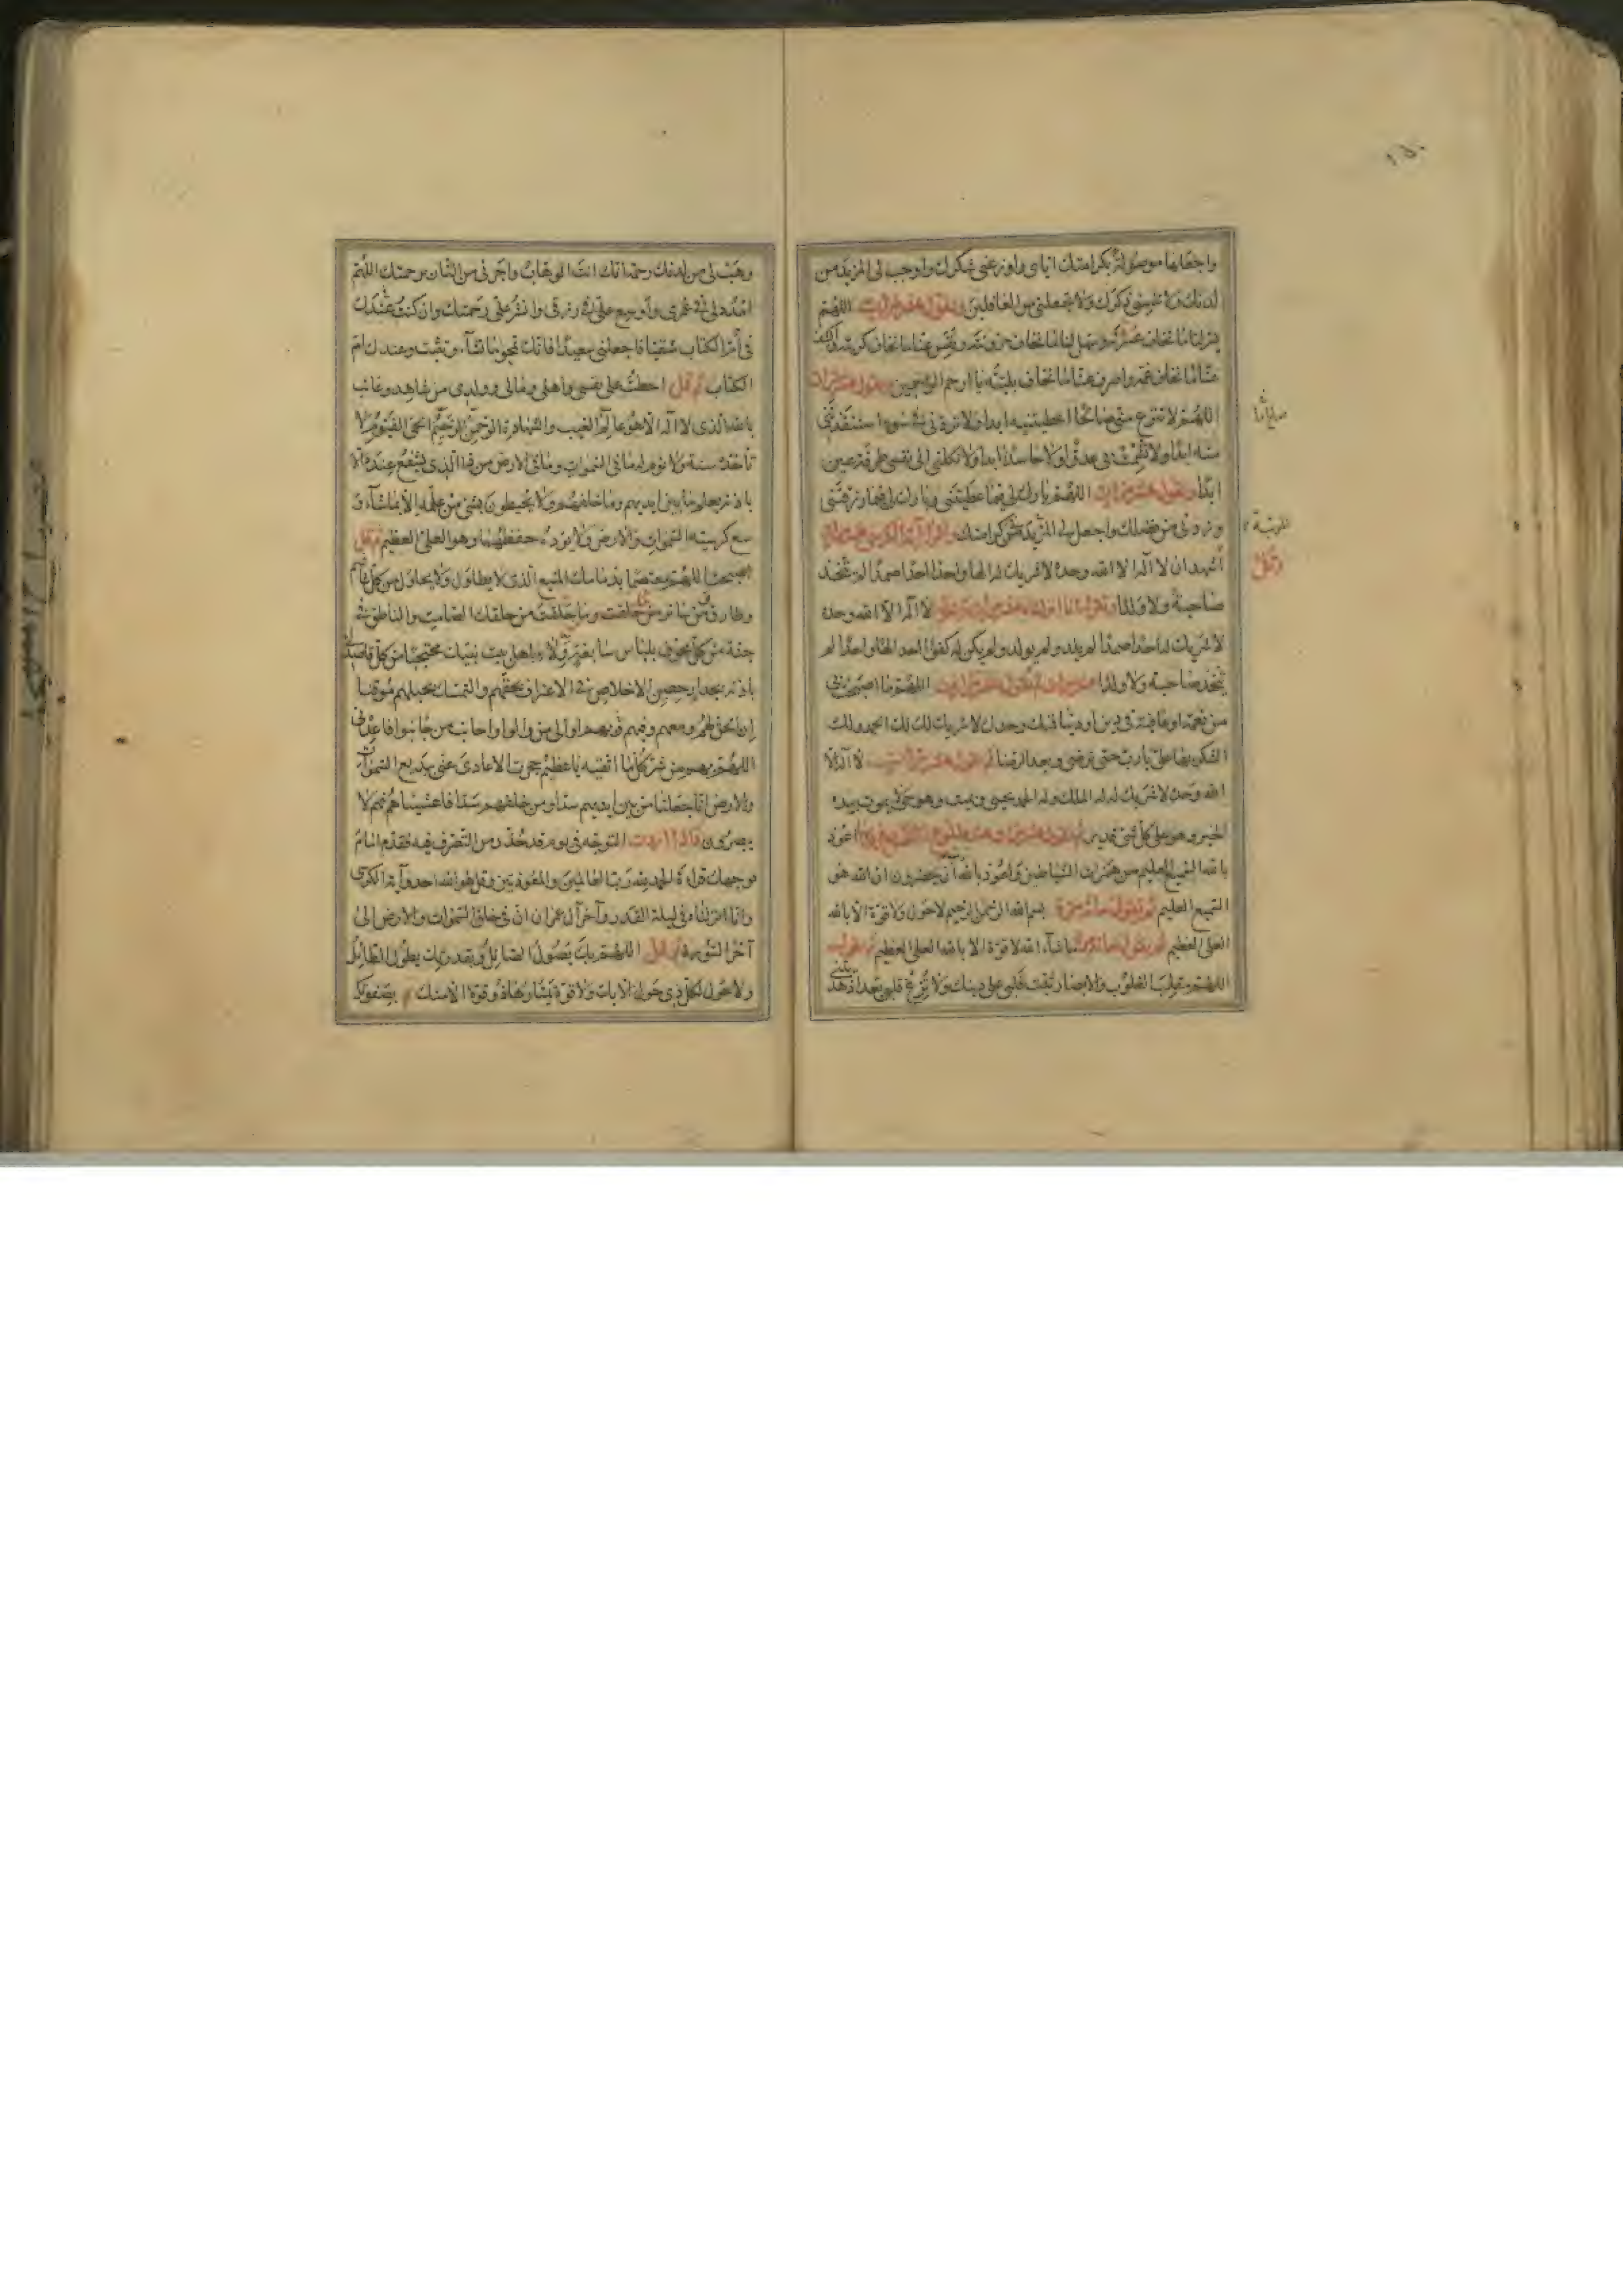 واجعلها موصولة بكرامتك اياى واوزعنى شكرك واوجب لى المزيد من
لدنك ولا تنسنى ذكرك ولا تجعلنى من الغافلين وتقول عشر مرات اللهم
يسر لنا ما نخاف عسرته وسهل لنا ما نخاف حزونته ونفس عنا ما نخاف كربته واكشف
عنا ما نخاف غمه واصرف عنا ما نخاف بليته يا ارحم الراحمين وتقول عشر مرات
اللهم لا تنزع منى صالح ما اعطيتنيه ابدا ولا تردنى فى سوء استنقذتنى
منه ابدا ولا تشمت بى عدوا ولا حاسدا ابدا ولا تكلنى الى نفسى طرفة عين
ابدا وتقول عشر مرات اللهم بارك لى فيما اعطيتنى وبارك لى فيما رزقتنى
وزدنى من فضلك واجعل لى المزيد من كرامتك
اشهد ان لا اله الا الله وحده لا شريك له الها واحدا احدا صمدا لم يتخذ
صاحبة ولا ولدا لا اله الا الله وحده
لا شريك له احدا صمدا لم يلد ولم يولد ولم يكن له كفوا احد الها واحدا لم
يتخذ صاحبة ولا ولدا عشر مرات ثم تقول عشر مرات اللهم ما اصبحت بى
من نعمة او عافية فى دين او دنيا فمنك وحدك لا شريك لك لك الحمد ولك
الشكر بها على يا رب حتى ترضى وبعد الرضا ثم تقول عشر مرات لا اله الا
الله وحده لا شريك له له الملك وله الحمد يحيى ويميت وهو حى لا يموت بيده
الخير وهو على كل شئ قدير اعوذ
بالله السميع العليم من همزات الشياطين واعوذ بالله ان يحضرون ان الله هو
السميع العليم ثم تقول مائة مرة بسم الله الرحمن الرحيم لا حول ولا قوة الا بالله
العلى العظيم ثم تقول مائة مرة ما شاء الله لا قوة الا بالله العلى العظيم ثم تقول
اللهم مقلب القلوب والابصار ثبت قلبى على دينك ولا تزغ قلبى بعد اذ هديتنى
وهب لى من لدنك رحمة انك انت الوهاب واجرنى من النار برحمتك اللهم
امدد لى فى عمرى واوسع على فى رزقى وانشر على رحمتك وان كنت عندك
فى ام الكتاب شقيا فاجعلنى سعيدا فانك تمحو ما تشاء وتثبت وعندك ام
الكتاب ثم قل احطت على نفسى واهلى ومالى وولدى من شاهد وغائب
بالله الذى لا اله الا هو عالم الغيب والشهادة الرحمن الرحيم الحى القيوم لا
تاخذه سنة ولا نوم له ما فى السموات وما فى الارض من ذا الذى يشفع عنده الا
باذنه يعلم ما بين ايديهم وما خلفهم ولا يحيطون بشئ من علمه الا بما شاء و
سع كرسيه السموات والارض ولا يؤده حفظهما وهو العلى العظيم ثم قل
اصبحت اللهم معتصما بذمامك المنيع الذى لا يطاول ولا يحاول من كل غاشم
وطارق من سائر من خلقت وما خلقت من خلقك الصامت والناطق فى
جنة من كل مخوف بلباس سابغة ولاء اهل بيت نبيك محتجبا من كل قاصد
باذية بجدار حصين الاخلاص فى الاعتراف بحقهم والتمسك بحبلهم موقنا
ان الحق لهم ومعهم وفيهم وبهم اوالى من والوا واجانب من جانبوا فاعذنى
اللهم بهم من شر كل ما اتقيه يا عظيم حجزت الاعادى عنى ببديع السموات
والارض انا جعلنا من بين ايديهم سدا ومن خلفهم سدا فاغشيناهم فهم لا
يبصرون فاذا اردت التوجه فى يوم قد حذر من التصرف فيه فقدم امام
توجهك قراءة الحمد لله رب العالمين والمعوذتين وقل هو الله احد وآية الكرسى
وانا انزلناه فى ليلة القدر وآخر آل عمران ان فى خلق السموات والارض الى
آخر السورة ثم قل اللهم بك يصول الصائل وبقدرتك يطول الطائل
ولا حول لكل ذى حول الا بك ولا قوة يمتارها ذو قوة الا منك بصفوتك